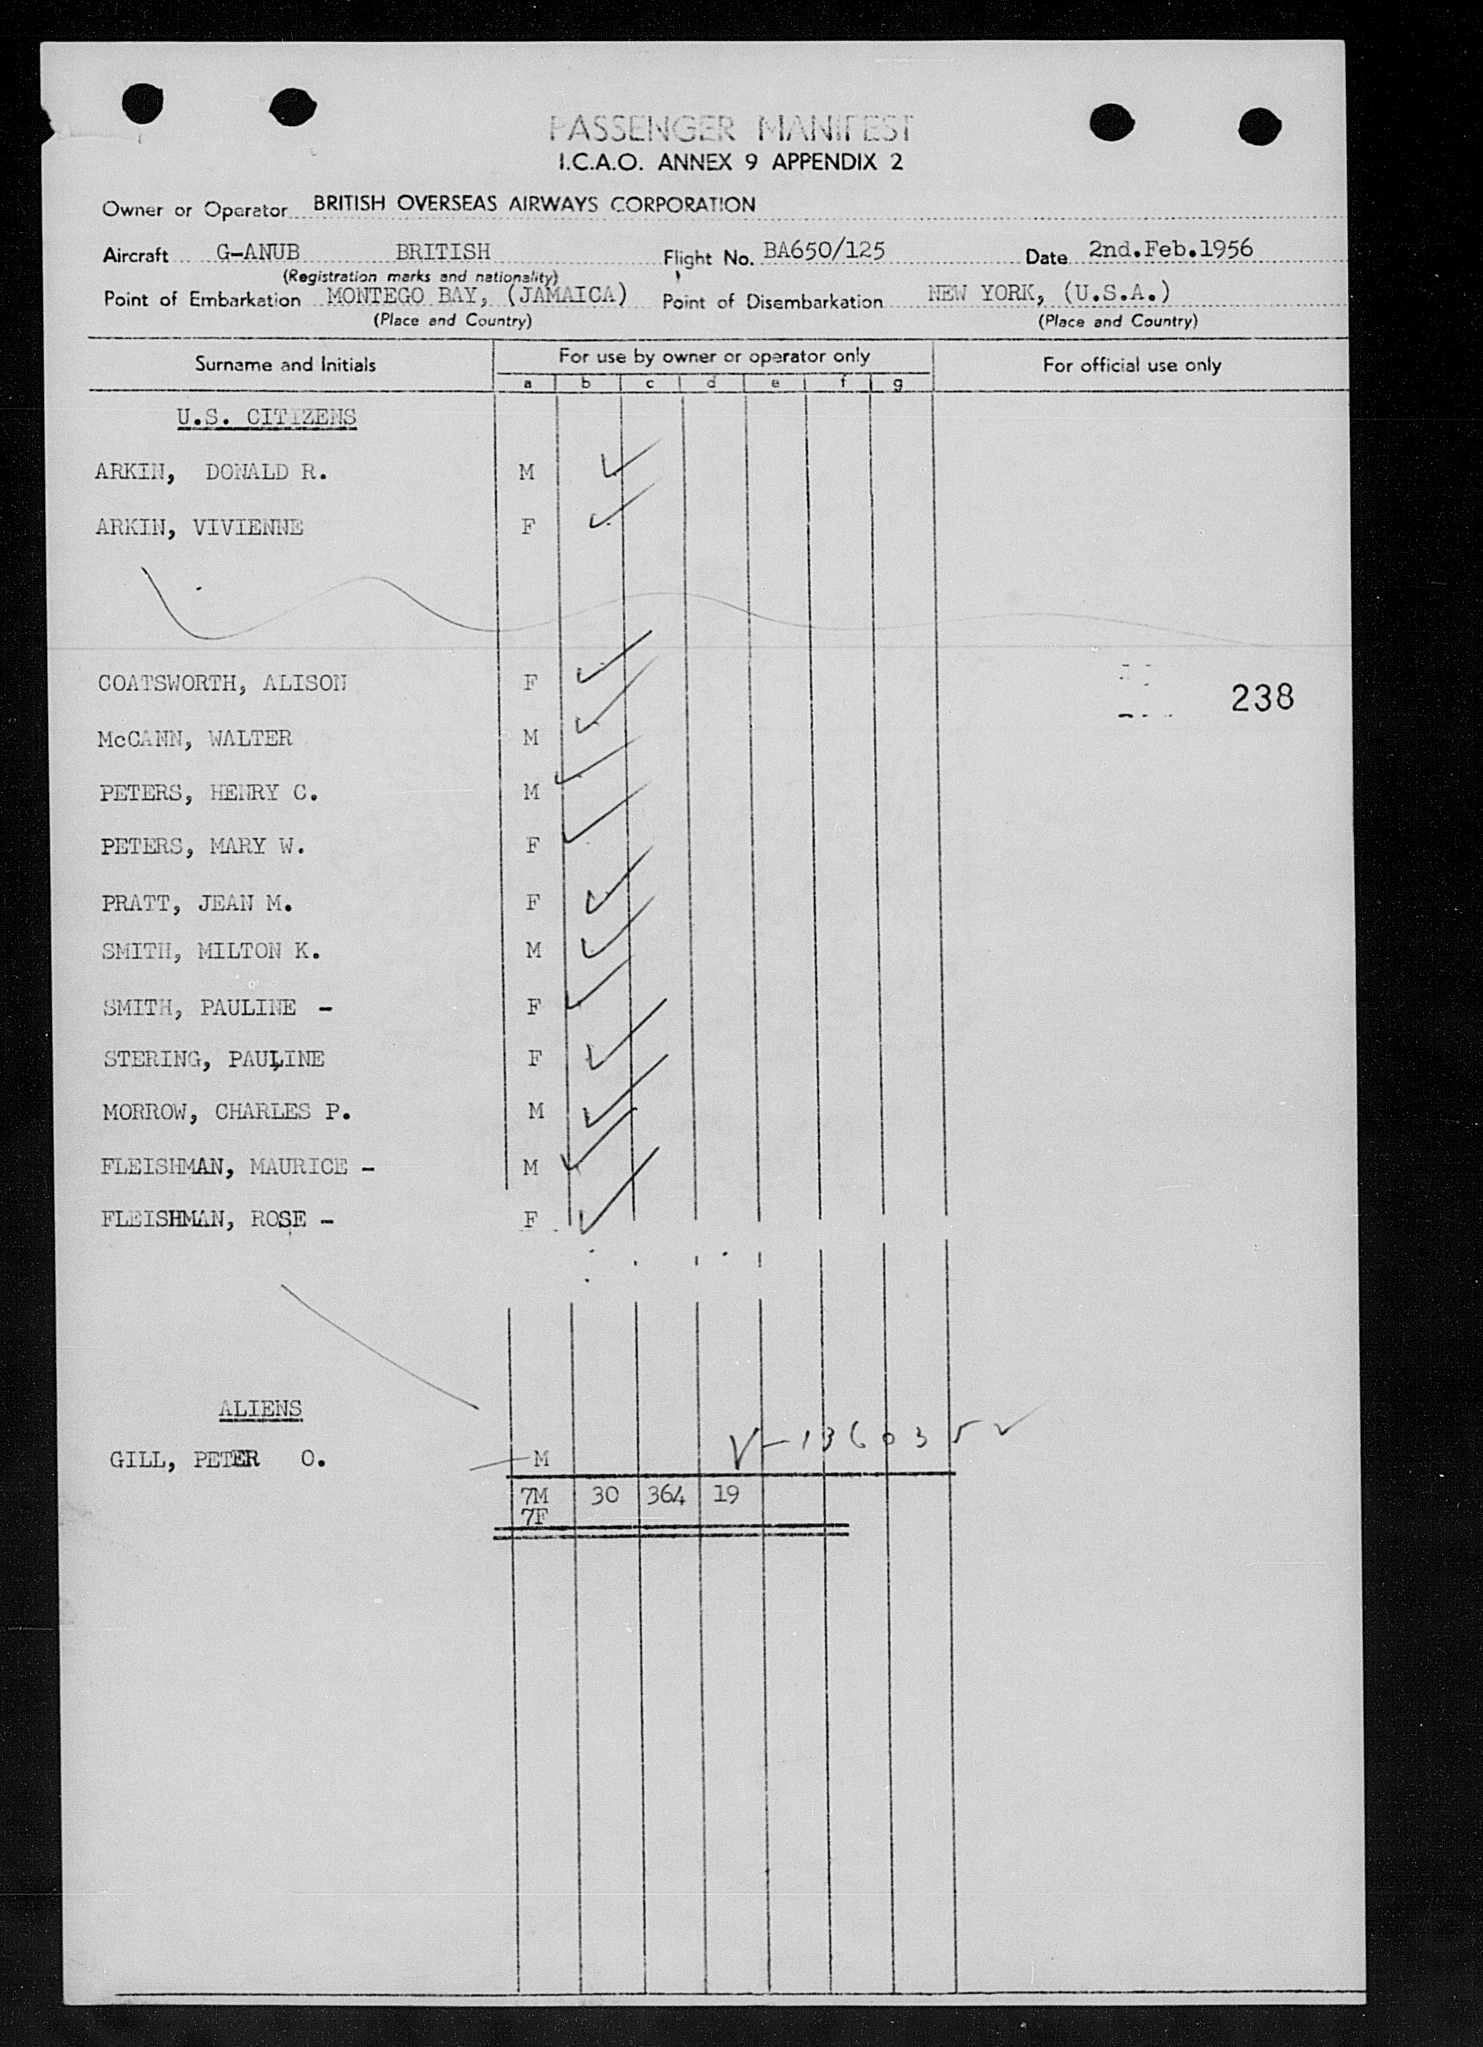 PASSENGER MANIFEST
I.C.A.O. ANNEX 9 APPENDIX 2
Owner or Operator BRITISH OVERSEAS AIRWAYS CORPORATION
Aircraft G-ANUB BRITISH Flight No. BA650/125 Date 2nd.Feb.1956
(Registration marks and nationality)
Point of Embarkation MONTEGO BAY, (JAMAICA) Point of Disembarkation NEW YORK, (U.S.A.)
(Place and Country) (Place and Country)
Surname and Initials For use by owner or operator only For official use only
a b c d e f g
U.S. CITIZENS
ARKIN, DONALD R. M
ARKIN, VIVIENNE F
COATSWORTH, ALISON F
238
McCANN, WALTER M
PETERS, HENRY C. M
PETERS, MARY W. F
PRATT, JEAN M. F
SMITH, MILTON K. M
SMITH, PAULINE - F
STERING, PAULINE F
MORROW, CHARLES P. M
FLEISHMAN, MAURICE - M
FLEISHMAN, ROSE - F
ALIENS
GILL, PETER O. M V-1360352
7M 30 364 19
7F